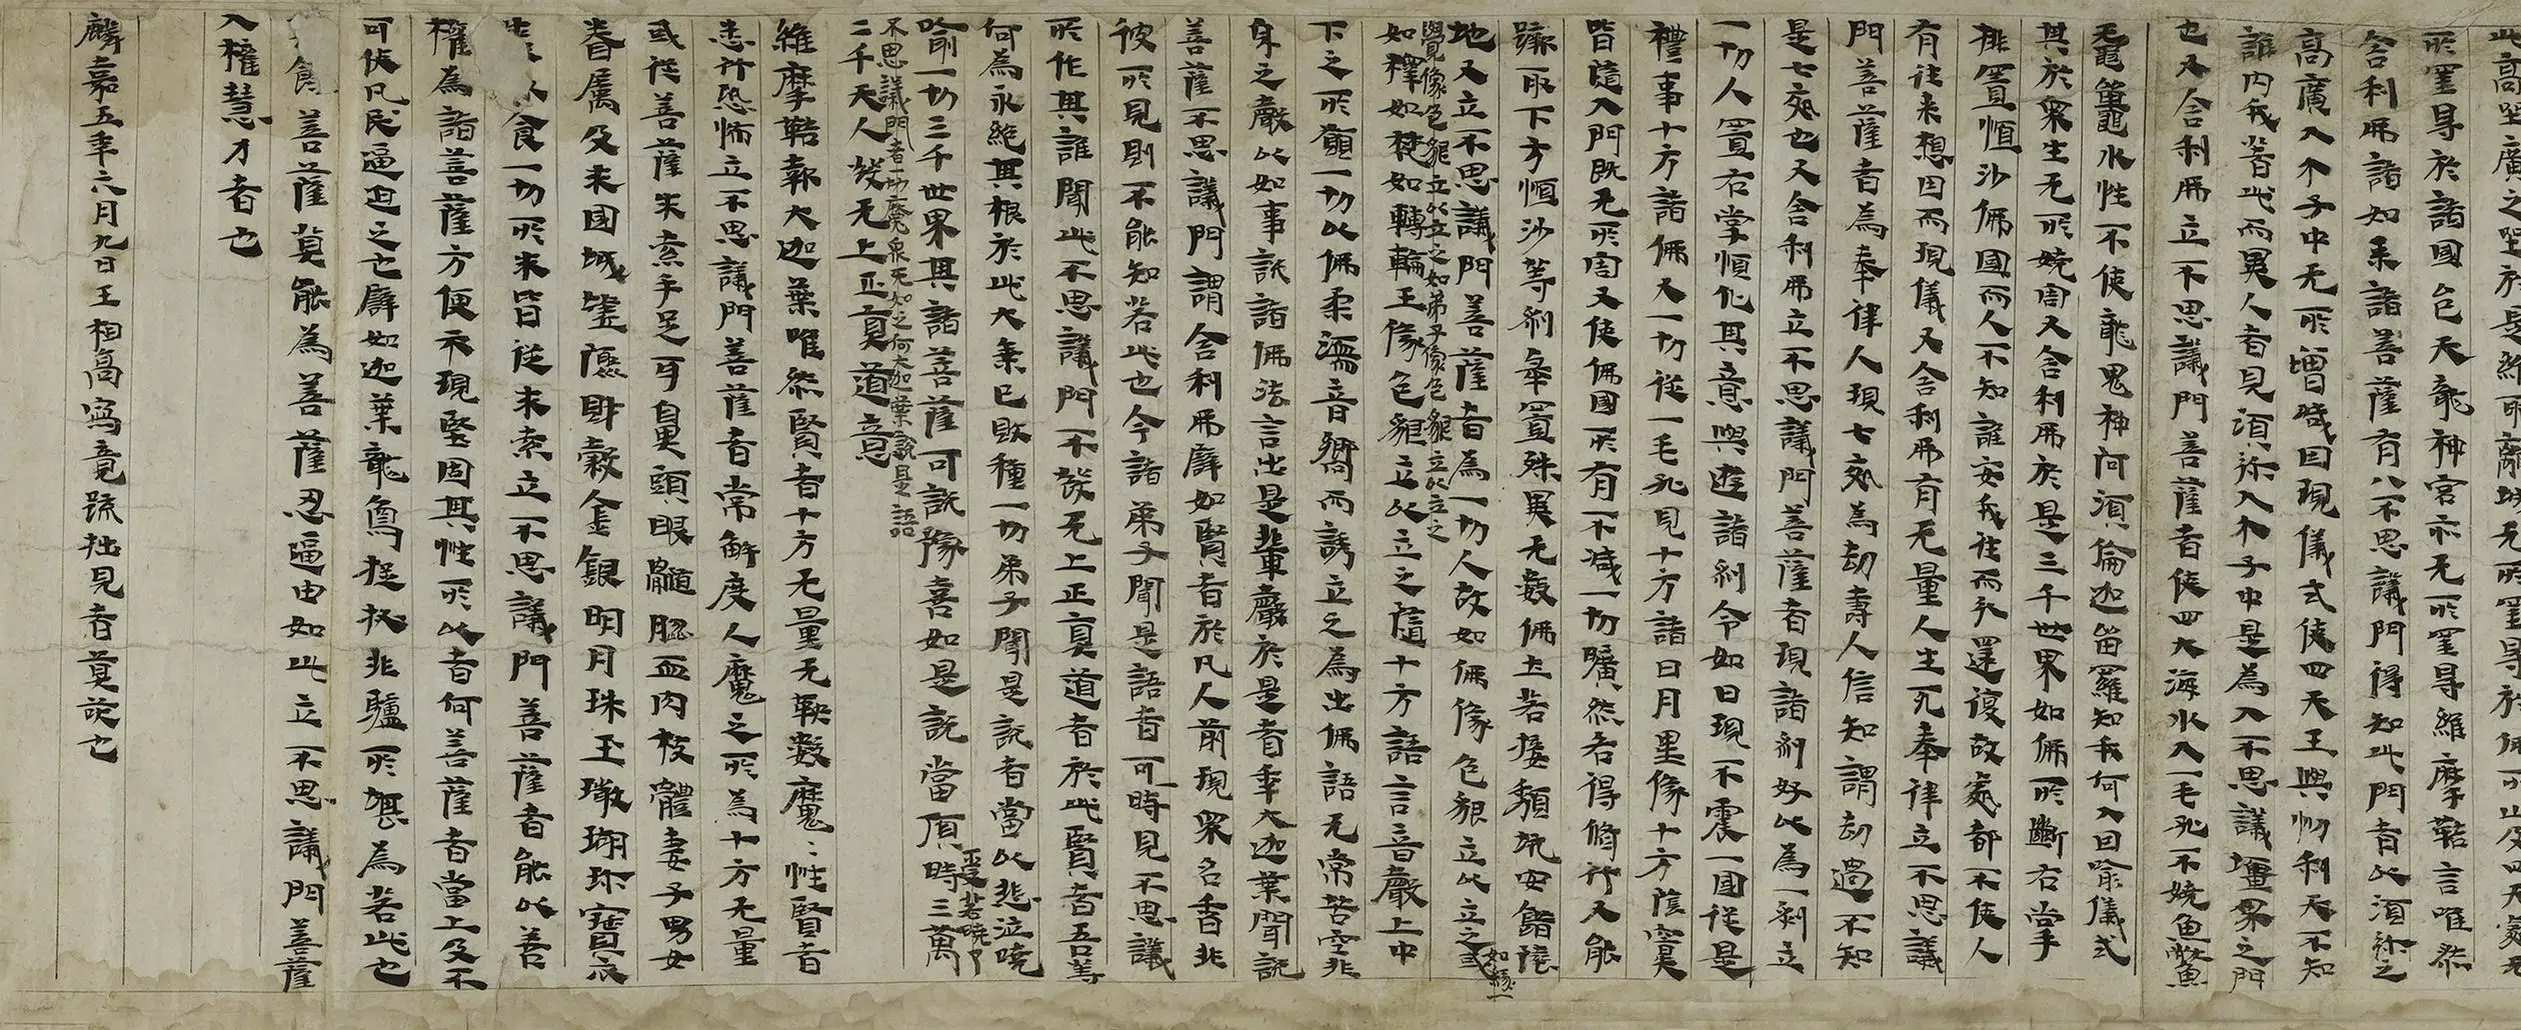 此高坐廣之坐於是維耶離城无所罣㝵於佛所止及四天處无
所罣㝵於諸國邑天龍神宮亦无所罣㝵維摩鞊言唯然
舍利弗諸如来諸菩薩有八不思議門得知此門者以湏弥之
高廣入芥子中无所增減因現儀式使四天王與忉利天不知
誰內我著此而異人者見湏弥入芥子中是為入不思議壃界之門
也又舍利弗立不思議門菩薩者使四大海水入一毛孔不嬈魚鱉
黿鼉水性不使龍鬼神阿湏倫迦留羅知我何入因喻儀式
其於衆生无所嬈害又舍利弗於是三千世界如佛所斷右掌
排置恒沙佛國而人不知誰安我往而我還復故處都不使人
有往来想因而現儀又舍利弗有无量人生死奉律立不思議
門菩薩者為奉律人現七夜為劫壽人信知謂劫過不知
是七夜也又舍利弗立不思議門菩薩者現諸刹好以為一刹立
一切人置右掌順化其意與遊諸刹令如日現不震一國從是
禮事十方諸佛又一切從一毛孔見十方諸日月星像十方陰冥
皆隨入門既无所害又使佛國所有不減一切曠然各得脩行又能
躁一取下方恒沙等刹舉置殊異无數佛土若接頺坑安饍陸
地又立不思議門菩薩者為一切人故如佛像色貌立以立之或如緣一
覺像色貌立以立之如弟子像色貌立以立之
如釋如梵如轉輪王像色貌立以立之隨十方語言音聲上中
下之所願一切以佛柔濡音響而誘立之為出佛語无常苦空非
身之聲以如事説諸佛法言出是輩聲於是耆年大迦葉聞説
菩薩不思議門謂舍利弗譬如賢者於凡人前現衆名香非
彼所見則不能知若此也今諸弟子聞是語者可時見不思議
所作其誰聞此不思議門不發无上正真道者於此賢者吾等
何為永絶其根於此大乗已敗種一切弟子聞是説者當以悲泣曉
喻一切三千世界其諸菩薩可説豫喜如是説當頂受若曉了時三萬
不思議門者一切魔衆无如之何大迦葉説是語
二千天人發无上正真道意
維摩鞊報大迦葉唯然賢者十方无量无鞅數魔魔性賢者
悉行恐怖立不思議門菩薩者常解度人魔之所為十方无量
或從菩薩求索手足耳鼻頭眼髓腦血肉枝體妻子男女
眷属及求國城墟聚財穀金銀明月珠玉珊瑚珎寶衣
食一切所求皆從求索立不思議門菩薩者能以善
權為諸菩薩方便示現堅固其性所以者何菩薩者當上及不
可使凡民逼迫之也譬如迦葉龍鳥捉扠非驢所堪為若此也
食菩薩莫能為菩薩忍逼由如此立不思議門菩薩
入權慧才者也
麟嘉五年六月九日王相高寫竟䟽拙見者莫䇿也